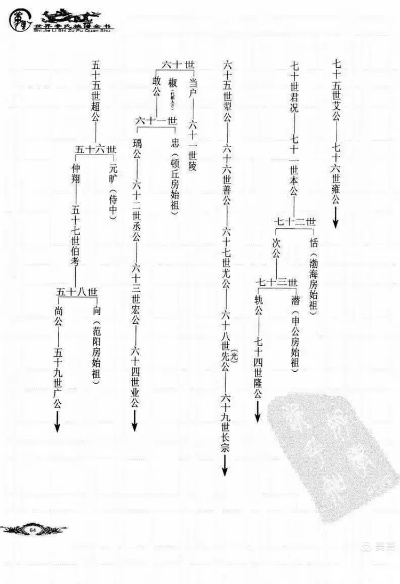 世界李氏族谱全书
Shi Jie Li Shi Zu Pu Quan Shu
五十五世超公
五十六世
元旷（侍中）
仲翔——五十七世伯考
五十八世
向（范阳房始祖）
尚公——五十九世广公
六十世
当户——六十一世陵
椒
敢公
六十一世
忠（顿丘房始祖）
瑀公——六十二世丞公——六十三世宏公——六十四世业公
六十五世犟公——六十六世善公——六十七世尤公——六十八世先公(光)——六十九世长宗
七十世君况——七十一世本公
七十二世
恬（渤海房始祖）
次公
七十三世
潜（申公房始祖）
轨公——七十四世隆公
七十五世艾公——七十六世雍公
64